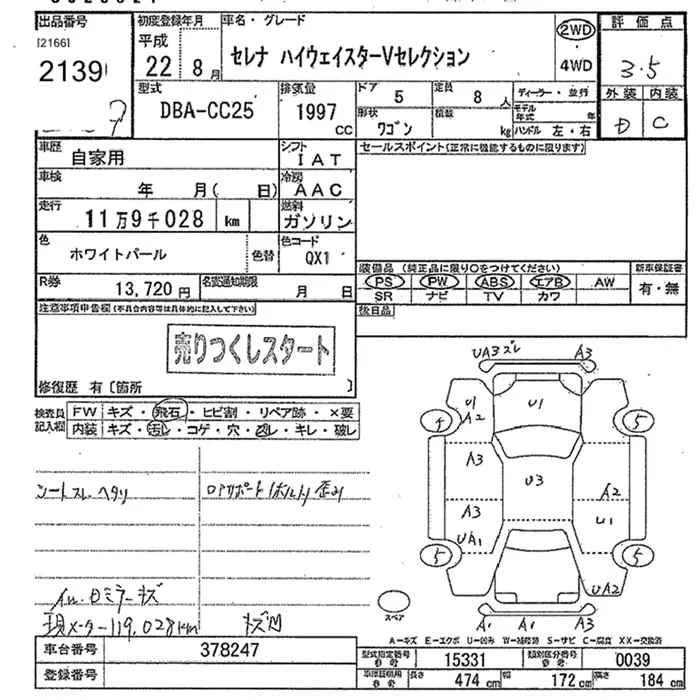 出品番号 初度登録年月 車名・グレード 2WD 評価点
[2166] 平成 22年 8月 セレナ ハイウェイスターVセレクション 4WD 3.5
2139
型式 排気量 ドア 5 定員 8人 ディーラー・並行 外装 内装
DBA-CC25 1997 cc 形状 ワゴン 積載 kg モデル年式 年 ハンドル 左・右 D C
車歴 自家用 シフト IAT セールスポイント(正常に機能するものに限ります)
車検 年 月( 日) 冷房 AAC
走行 11万9千028 km 燃料 ガソリン
色 ホワイトパール 色替 色コード QX1
装備品 (純正品に限り○をつけてください) 新車保証書
R券 13,720円 名変通知期限 月 日
PS PW ABS エアB AW 有・無
SR ナビ TV カワ
注意事項申告欄(不具合内容等は具体的に記入して下さい) 後日品
売りつくしスタート
修復歴 有〔箇所 〕
検査員記入欄 FW キズ・飛石・ヒビ割・リペア跡・×要
内装 キズ・汚レ・コゲ・穴・スレ・キレ・破レ
シートスレ ヘタリ
現メーター119,028km
UA3 ズレ A3
U1 A2 U1
4 5
A3 U3
A3 A2
UA1 U1
5 5
UA2
A1 A1 A3
スペア
A-キズ E-エクボ U-凹み W-補修跡 S-サビ C-腐食 XX-交換済
車台番号 378247 型式指定番号 参考 15331 類別区分番号 参考 0039
登録番号 車検証期用 参考 長さ 474cm 幅 172cm 高さ 184cm